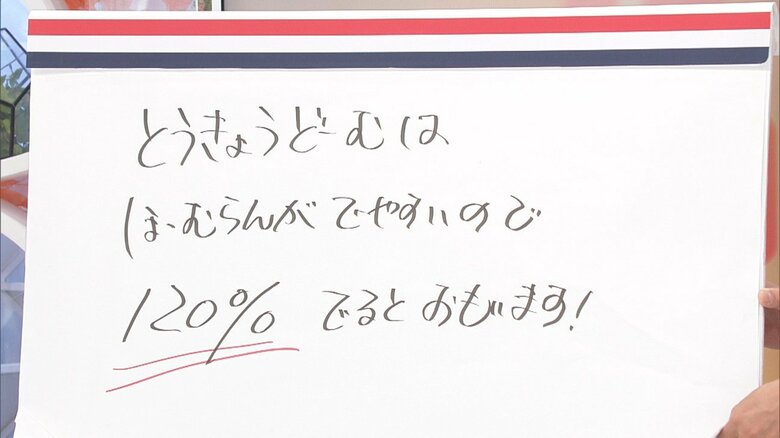 とうきょうどーむは
ほーむらんがでやすいので
120% でるとおもいます!